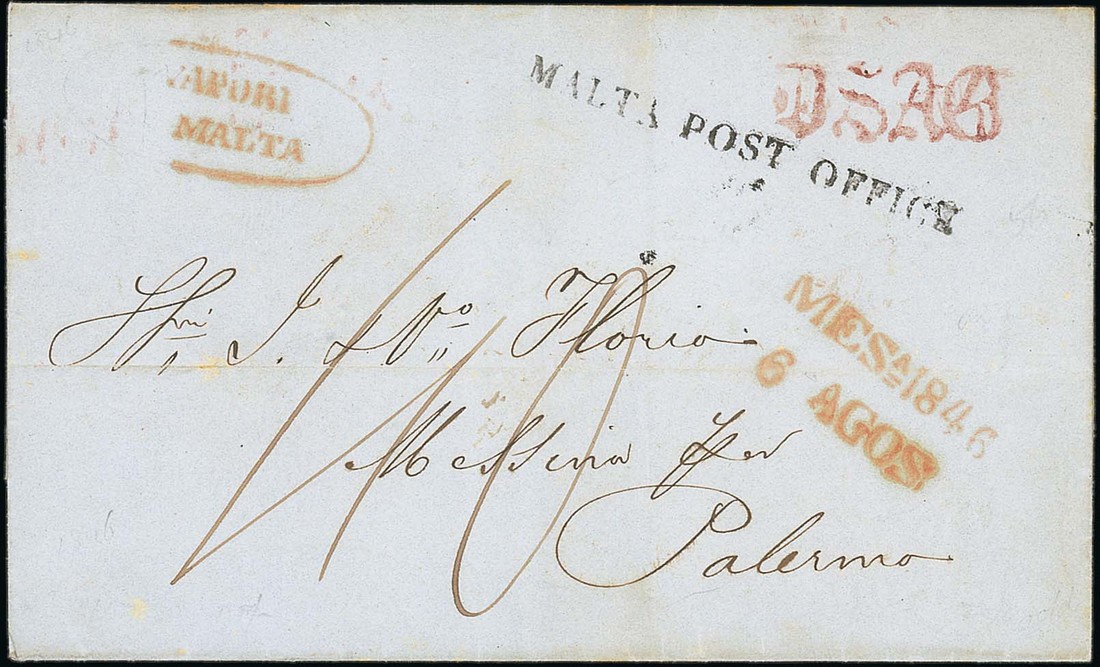 VAPORI
MALTA
MALTA POST OFFICE
DSAB
Sri. I. & Vo. Florio.
Messina per
Palermo
MESA 1846
6 AGOS